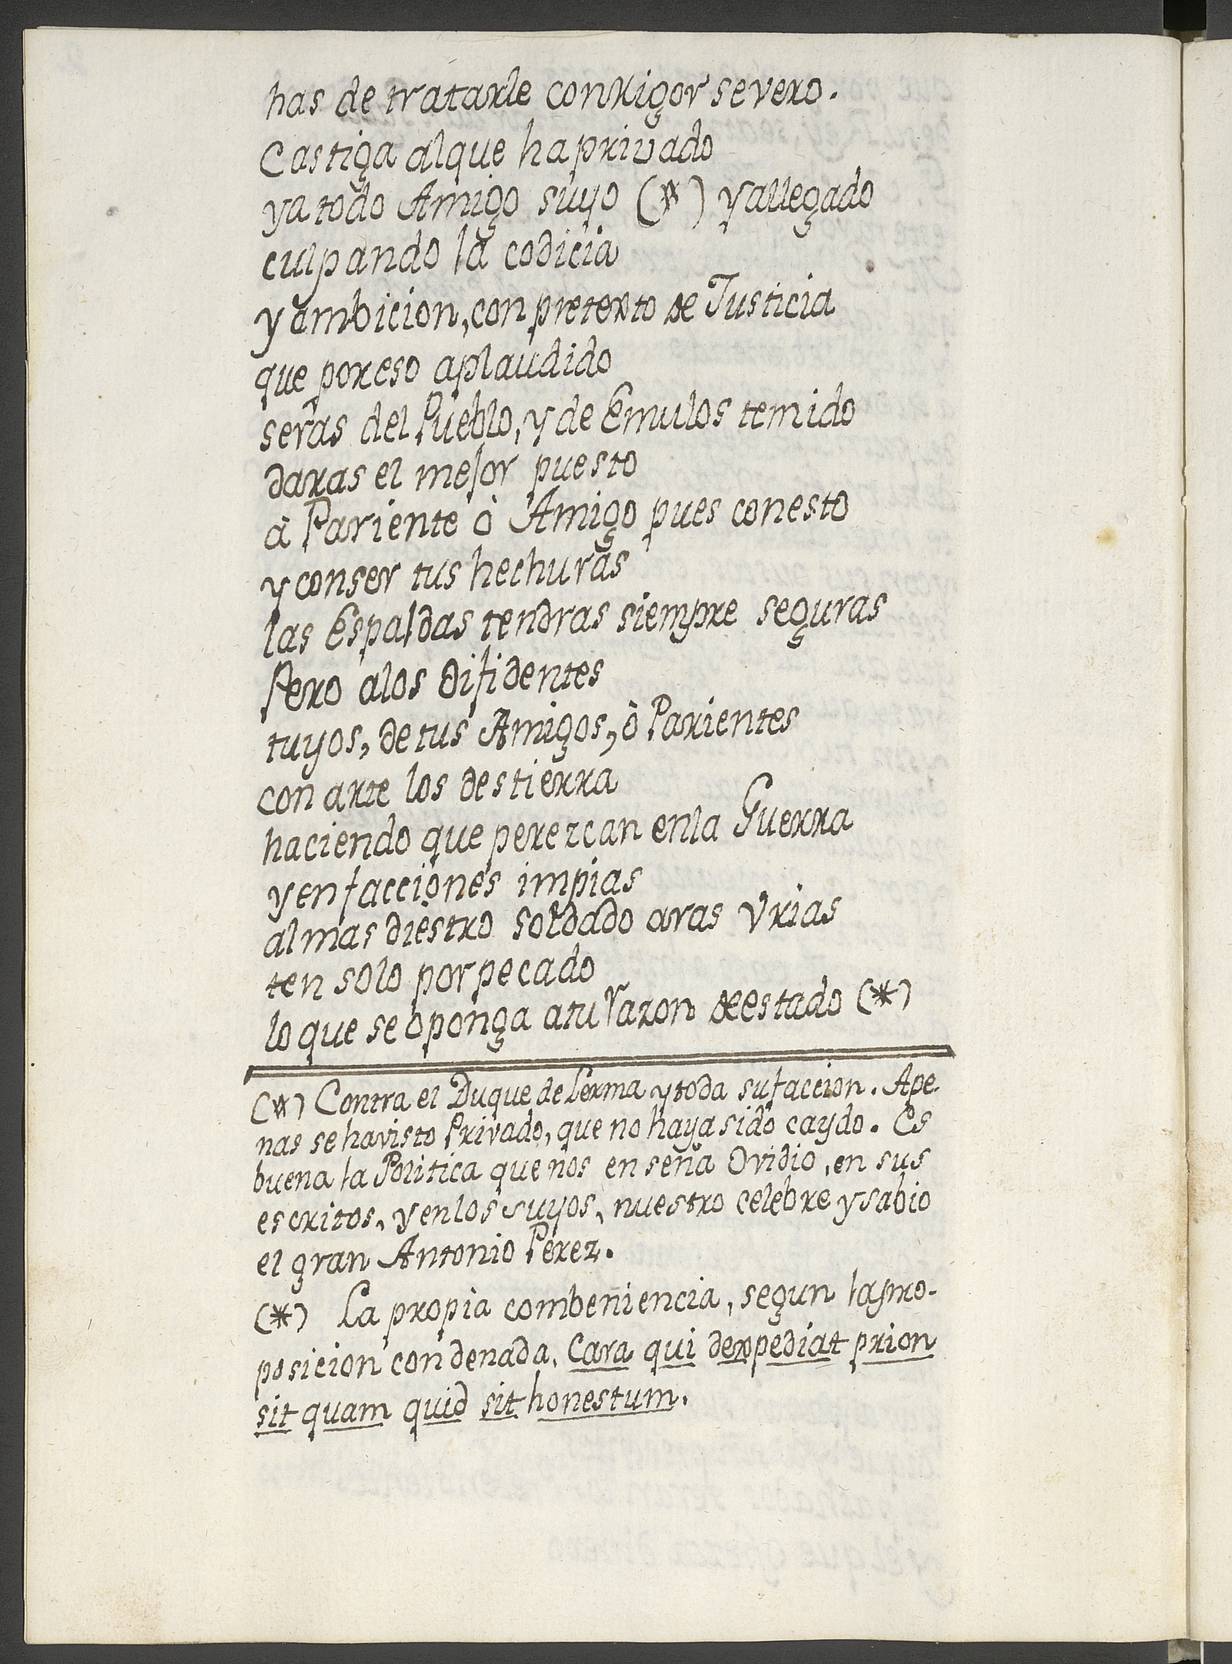 has de tratarle con rigor severo.
Castiga al que ha privado
ya todo Amigo suyo (*) y allegado
culpando la codicia
y ambicion, con pretexto de Justicia
que por eso aplaudido
seras del Pueblo, y de Emulos temido
daras el mejor puesto
à Pariente ò Amigo pues con esto
y con ser tus hechuras
las Espaldas tendras siempre seguras
Pero a los Difidentes
tuyos, de tus Amigos, ò Parientes
con arte los destierra
haciendo que perezcan en la Guerra
y en facciones impias
al mas diestro soldado aras Vrias
ten solo por pecado
lo que se oponga a tu razon de estado (*)
(*) Contra el Duque de Lerma y toda su faccion. Ape-
nas se ha visto Privado, que no haya sido caydo. Es
buena la Politica que nos enseña Ovidio, en sus
escritos, y en los suyos, nuestro celebre y sabio
el gran Antonio Perez.
(*) La propia combeniencia, segun la pro-
posicion condenada. Cara qui dexpediat prion
sit quam quid sit honestum.